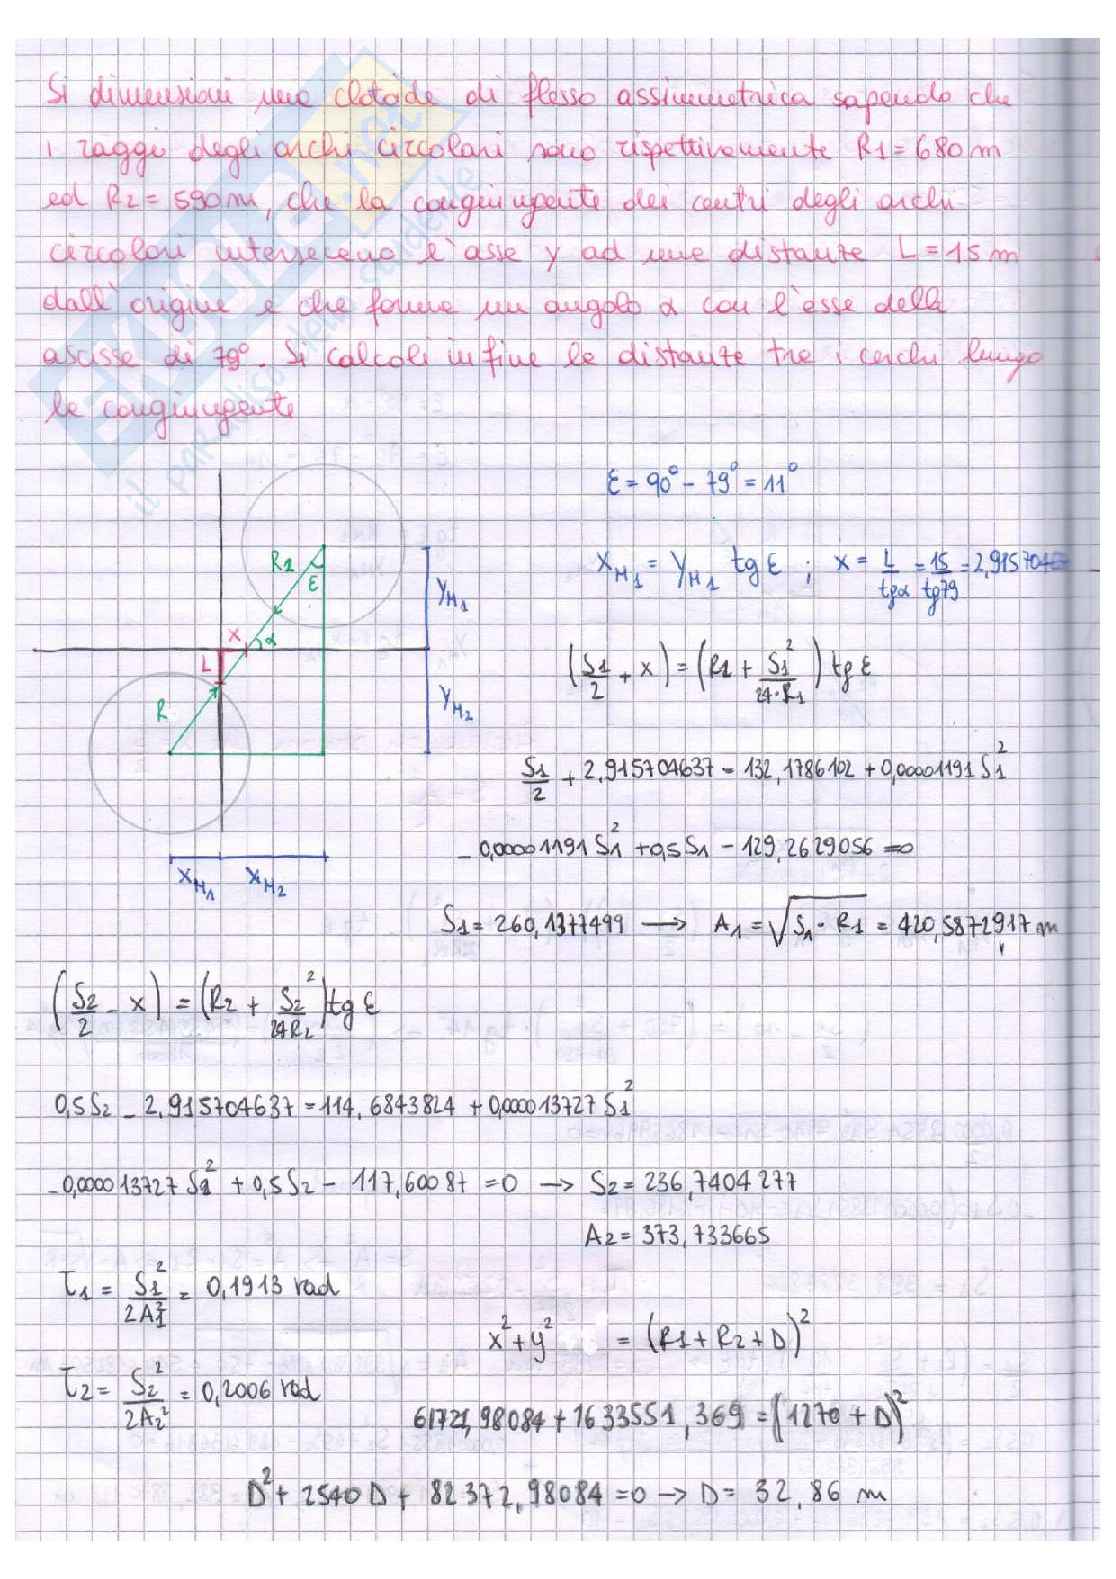 Si dimensioni una clotoide di flesso assimmetrica sapendo che
i raggi degli archi circolari sono rispettivamente R1 = 680 m
ed R2 = 590 m, che la congiungente dei centri degli archi
circolari intersecano l'asse y ad una distanza L = 15 m
dall'origine e che forma un angolo α con l'asse delle
ascisse di 79°. Si calcoli infine la distanza tra i cerchi lungo
la congiungente
ε = 90° - 79° = 11°
R1
ε
YH1
XH1 = YH1 tg ε ; x = L/tgα = 15/tg79 = 2,91570467
x
α
L
R
YH2
(S1/2 + x) = (R1 + S1²/24·R1) tg ε
S1/2 + 2,915704637 = 132,1786102 + 0,00001191 S1²
-0,00001191 S1² + 0,5 S1 - 129,2629056 = 0
XH1 XH2
S1 = 260,1377499 → A1 = √S1·R1 = 420,5872917 m
(S2/2 - x) = (R2 + S2²/24R2) tg ε
0,5 S2 - 2,915704637 = 114,6843824 + 0,000013727 S1²
-0,000013727 S2² + 0,5 S2 - 117,60087 = 0 → S2 = 236,7404277
A2 = 373,733665
τ1 = S1²/2A1² = 0,1913 rad
x² + y² = (R1 + R2 + D)²
τ2 = S2²/2A2² = 0,2006 rad
61721,98084 + 1633551,369 = (1270 + D)²
D² + 2540 D + 82372,98084 = 0 → D = 32,86 m